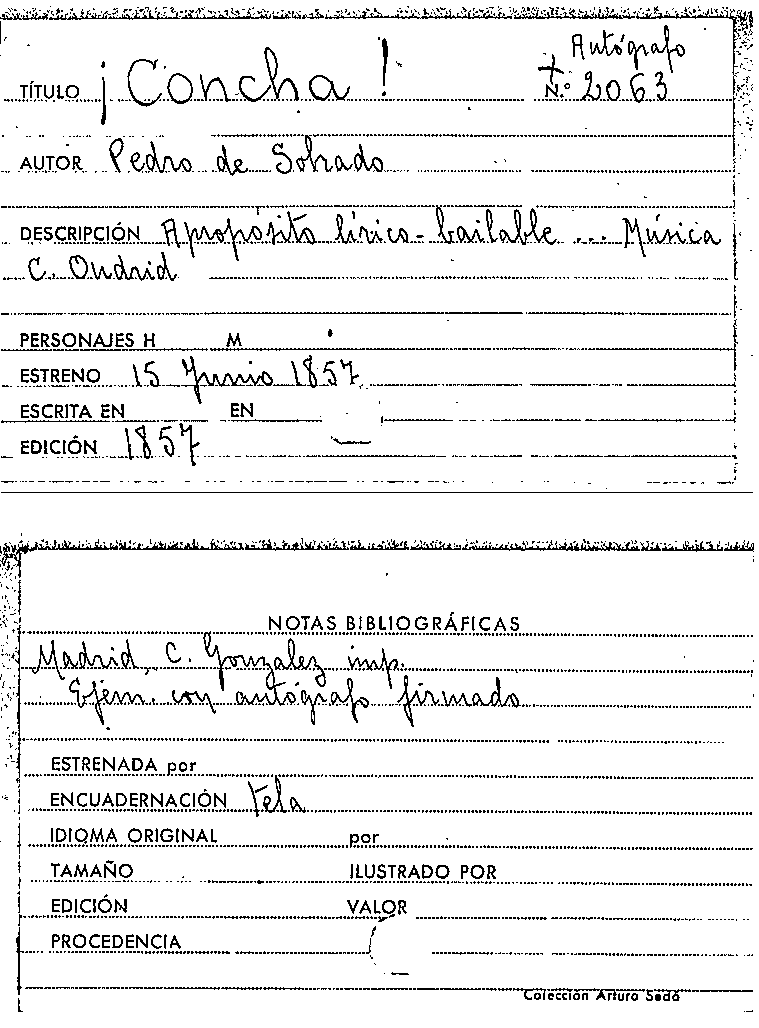 Autógrafo
TÍTULO ¡Concha! N.º 2063
AUTOR Pedro de Sobrado
DESCRIPCIÓN Apropósito lírico-bailable ... Música
C. Oudrid
PERSONAJES H M
ESTRENO 15 Junio 1857
ESCRITA EN EN
EDICIÓN 1857
NOTAS BIBLIOGRÁFICAS
Madrid, C. Gonzalez imp.
Ejem. con autógrafo firmado
ESTRENADA por
ENCUADERNACIÓN Tela
IDIOMA ORIGINAL por
TAMAÑO ILUSTRADO POR
EDICIÓN VALOR
PROCEDENCIA
Colección Arturo Sedó